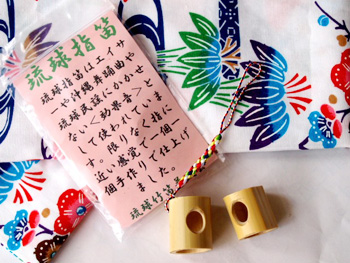 琉球指笛
琉球指笛はエイサー
や沖縄民謡曲や
琉球音謡にかかせ
ない<効果音>
として使われていま
す。限りなく指に
近い感覚で一個一
個手作りで仕上げ
ました。
琉球竹笛